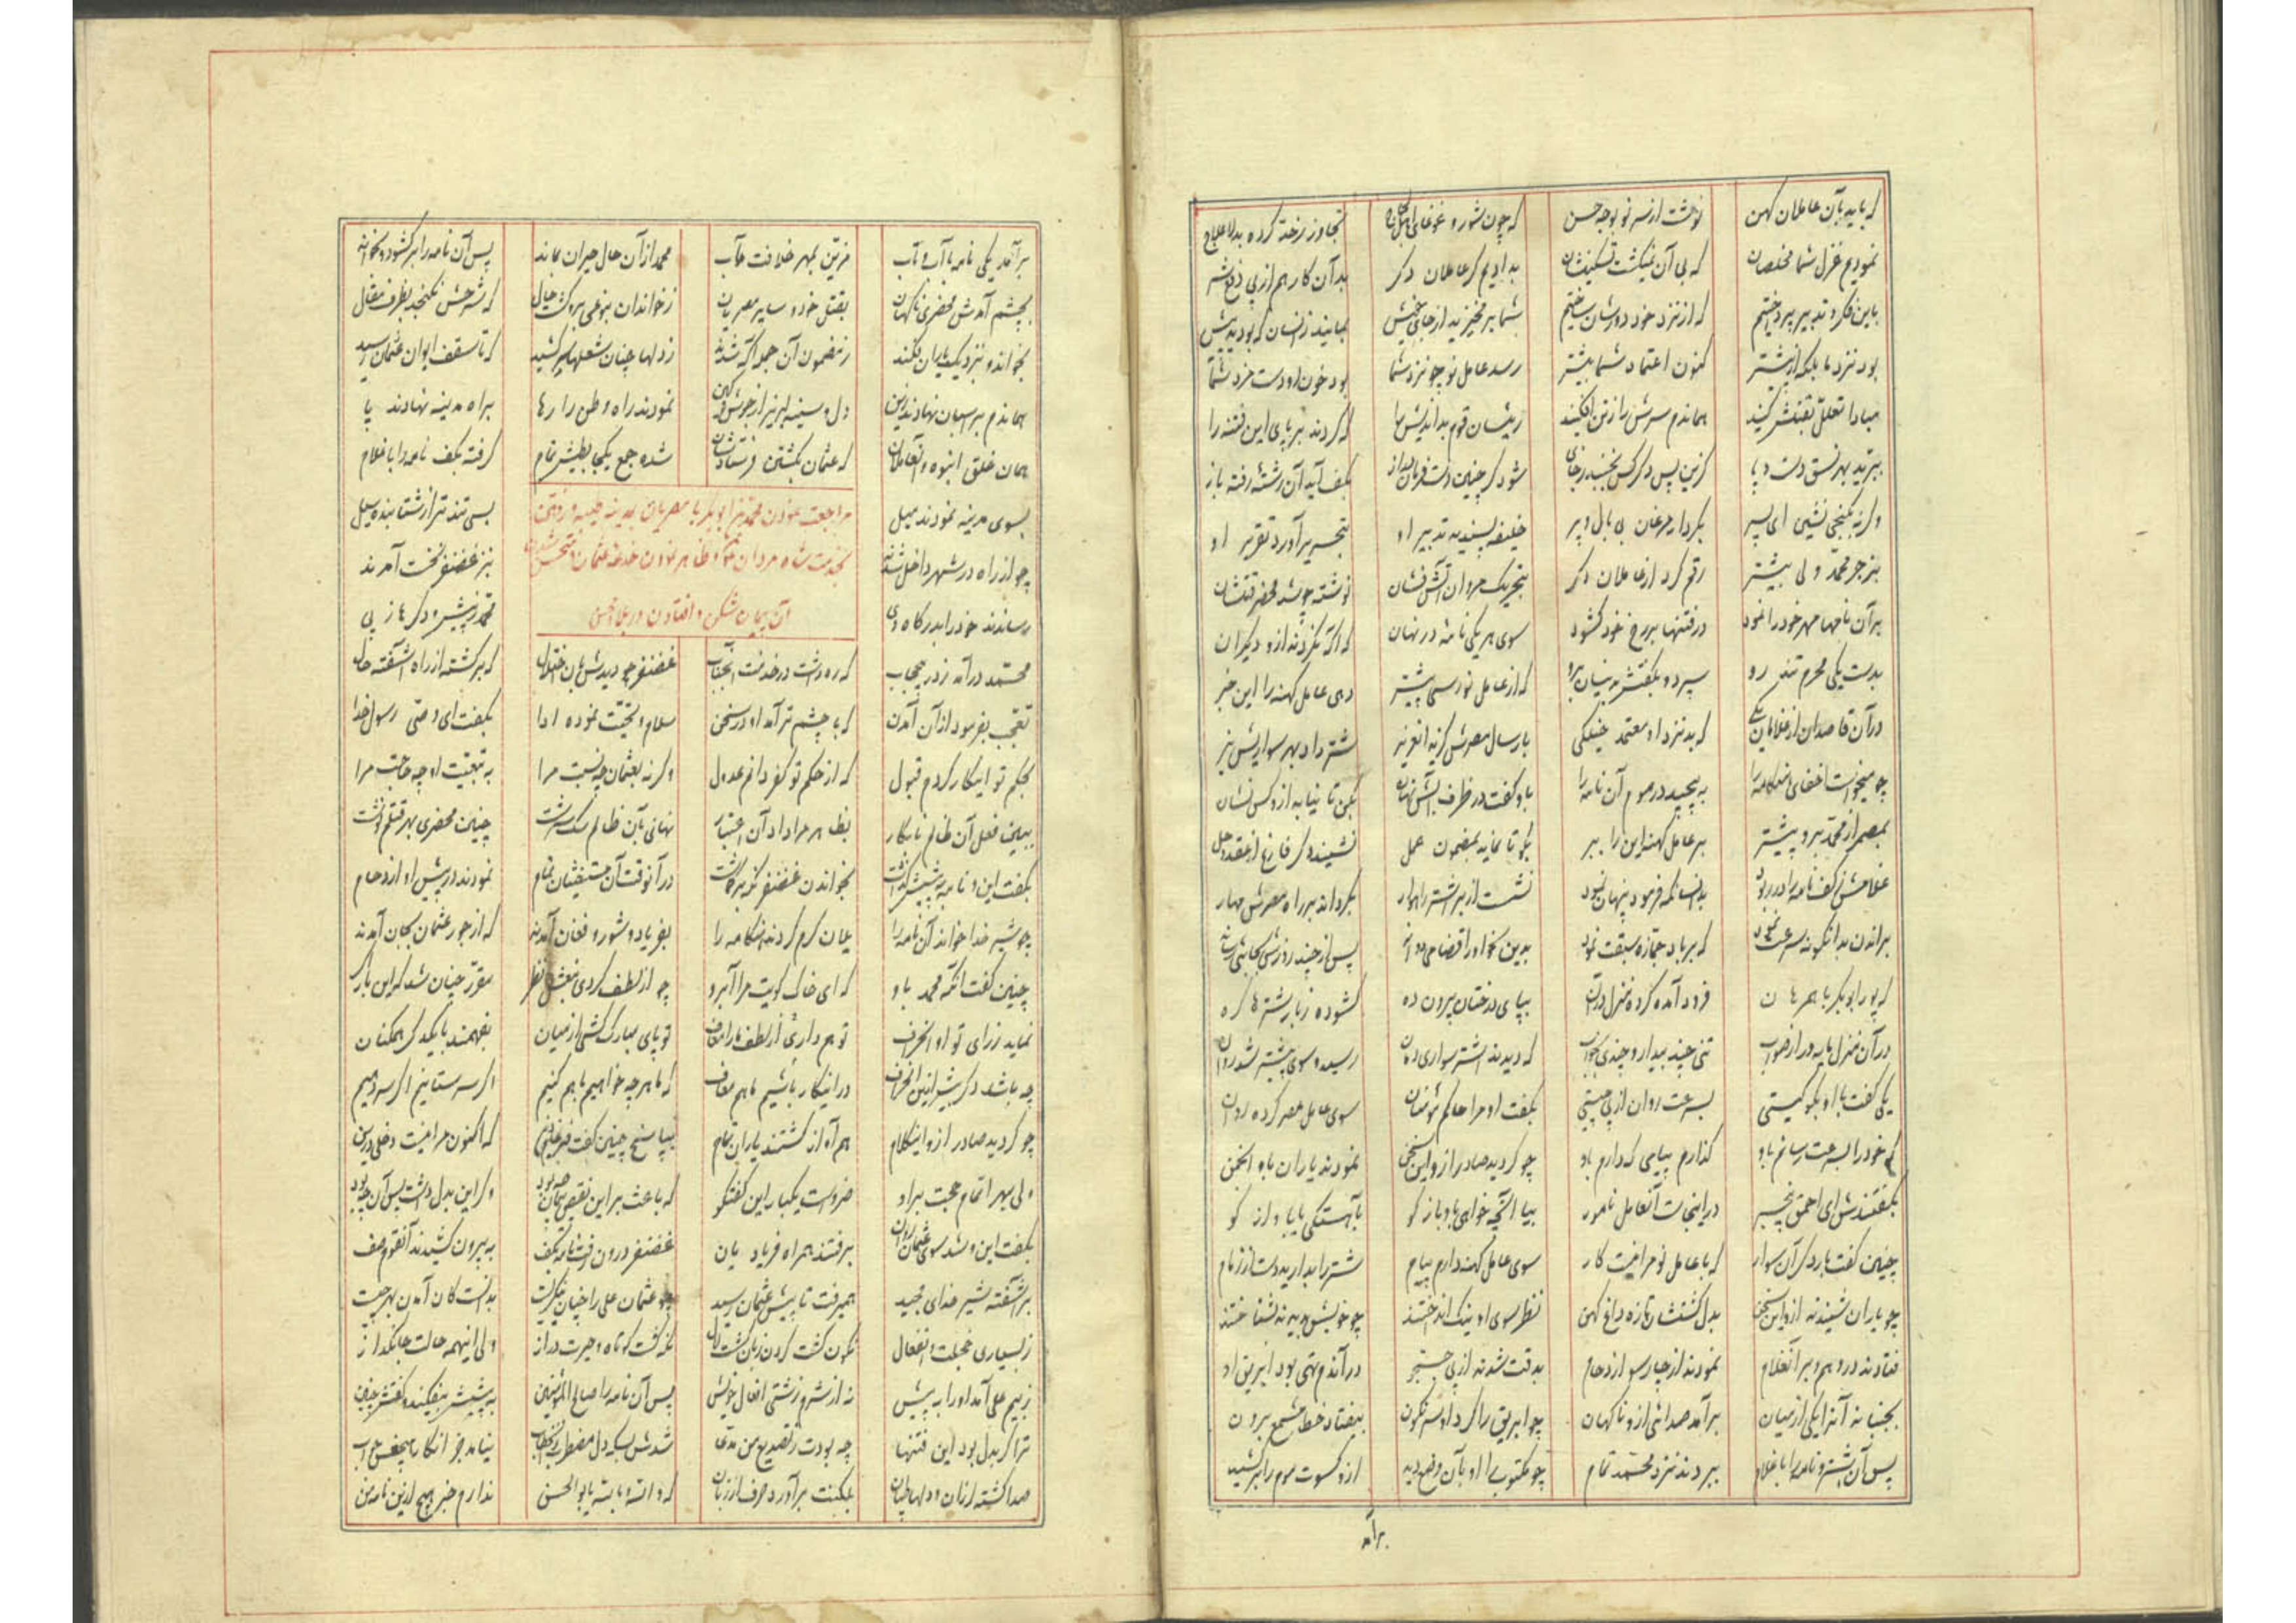 که باید بآن عاملان کهن نوشت از سر نو بوجه حسن که چون شور و غوغای تجاوز ز حد کرده بد لاعلاج
نمودیم عزل شما مخلصان که بی آن نمیگشت تسکینشان بدادیم کر عاملان دکر بدآن کار هم از پی دفع شر
باین فکر و تدبیر پرداختیم که از نزد خود دورشان ساختیم شما بر مخیزید از جای خویش بمانید زانسان که بودید پیش
بود نزد ما بلکه از پیشتر کنون اعتماد شما بیشتر رسد عامل نو چو نزد شما بود خون او دست مزد شما
مبادا تعلل بقتلش کنید هماندم سرش را ز تن افکنید رئیسان قوم بداندیش را که کردند بر پای این فتنه را
ببرید بهر نسق دست و پا کزین پس دکر کس نجنبد ز جای شود کر چنین بکف آید آن رشتهٔ رفته باز
وکرنه بکنجی نشینی ای پسر بکردار مرغان بی بال و پر خلیفه پسندید تدبیر او بتحریر آورد تقریر او
بنز جز محمد ولی بیشتر رقم کرد از عاملان دکر بتحریک مروان آتش فشان نوشته چو شد محضر قتلشان
بر آن نامها مهر خود را نمود در فتنها بر رخ خود کشود سوی هر یکی نامه در نهان که اکه نکردند ازو دیکران
بدست یکی محرم تند رو سپرد و بکفتش برو که از عامل نو رسی پیشتر دهی عامل کهنه را این خبر
در آن قاصدان از غلامان یکی که بد نزد او معتمد بارسال مصرش شتر داد بهر سواریش نیز
چو میخواست اخفای هنکامه را به پیچید در موم آن نامه را باو کفت در ظرف آبش نهان بکن تا نیابد ازو کس نشان
بمصر از محمد برو پیشتر بر عامل کهنه این را ببر بکو تا نماید بمضمون عمل نشیند دکر فارغ از
غلامش ز کف نامه را در ربود بدانسانکه فرمود پنهان نمود نشست از بر اشتر راهوار بکرداند بر راه مصرش مهار
براندن بدانکونه سرعت نمود که بر باد جمازه سبقت نمود بدین پس از چند روزش بجائی رساند
که پور ابوبکر با همرهان فرود آمده کرده منزل در آن بپای درختان بیرون ده کشوده ز بار شترها کره
در آن منزل تنی چند بیدار و چندی بخواب که دیدند اشتر سواری دوان رسید و سوی پیشتر شد روان
یکی کفت با او بکو کیستی بسرعت روان از پی چیستی بکفت او مرا حاکم مؤمنان سوی عامل مصر کرده روان
که خود را بسرعت رسانم باو کذارم پیامی که دارم باو چو کردید صادر ازو این سخن نمودند یاران باو انجمن
بکفتندش ای احمق بیخبر در اینجاست آنعامل نامور بیا آنچه خواهی باو باز کو بآهستکی یا بآواز کو
چنین کفت بار دکر آن سوار که با عامل نو مرا نیست کار سوی عامل کهنه دارم پیام شتر را بدارید دست از زمام
چو یاران شنیدند ازو این سخن بدل کشتشان تازه داغ کهن نظر سوی او نیک انداختند چو خویش بدیدند نشناختند
فتادند در وهم بر آنغلام نمودند از چارسو ازدحام بدقت شدند از پی جستجو در آندم تهی بود ابریق او
بجنباند آنرا یکی از میان برآمد صدائی ازو ناکهان چو ابریق را کرد او سرنکون بیفتاد خط مشمع برون
پس آن اشتر و نامه را با غلام ببردند نزد محمد تمام چو مکتوب را او بآن وضع دید ازو کسوت موم را برکشید
برآمد
برآمد یکی نامه با آب و تاب مزین بمهر خلافت مآب محمد از آن حال حیران بماند پس آن نامه را برکشود و بخواند
بچشم آمدش محضری ناکهان بقتل خود و سایر مصریان ز خواندان بنوعی برو کشت حال که شرحش نکنجد بظرف مقال
بخواند و بنزدیک یاران فکند ز مضمون آن جمله آکه شدند ز دلها چنان شعلها سر کشید که تا سقف ایوان عثمان رسید
هماندم بر اسبان نهادند زین دل و سینه لبریز از جوش کین نمودند راه وطن را رها براه مدینه نهادند پا
همان خلق انبوه که عثمان بکشتن فرستادشان شده جمع یکجا بطیش تمام کرفته بکف نامه را با غلام
مراجعت نمودن محمد بن ابوبکر با مصریان بمدینه
بخدمت شاه مردان و ظاهر نمودن خدعهٔ عثمان
آن پیمان شکن و افتادن در بلا
بسوی مدینه نمودند میل بسی تند تر از شتابنده سیل
چو از راه در شهر داخل شدند بنزد غضنفر نخست آمدند
رساندند خود را بدرکاه وی محمد ز پیش و دکرها ز پی
محمد درآمد ز در بیحجاب که ره داشت در خدمت آنجناب غضنفر چو دیدش بآن اختلال که برکشته از راه آشفته حال
تعجب بفرمود از آن آمدن که با چشم تر آمد او در سخن سلام و تحیت نموده ادا بکفت ای وصی رسول خدا
بحکم تو اینکار کردم قبول که از حکم تو کفر دانم عدول وکرنه بعثمان چه نسبت مرا به تبعیت او چه حاجت مرا
ببین فعل آن ظالم نابکار بظاهر مرا داد آن اعتبار نهانی بآن ظالم چنین محضری بهر قتلم نوشت
بکفت این و نامه به پیشش کذاشت بخواندن غضنفر در آنوقت آن مستغیثان تمام نمودند در پیش او ازدحام
چو شیر خدا خواند آن نامه را عیان کرم کردند هنکامه را بفریاد و شور و فغان آمدند که از جور عثمان بجان آمدند
چنین کفت آنکه محمد باو که ای خاک کویت مرا آبرو چو از لطف کردی مقرر چنان شد
نماید ز رای تو او انحراف تو هم داری از لطف ما را معاف تو پای مبارک کشی از میان بفهمند با یکدکر همکنان
چه باشد دکر بیش ازین انحراف در اینکار باشیم ما هم معاف که ما هر چه خواهیم با هم کنیم اکر سر ستانیم اکر سر دهیم
چو کردید صادر ازو اینکلام هم آواز کشتند یاران تمام بپاسخ چنین کفت که اکنون مرا نیست دخلی درین
ولی بهر اتمام حجت براو ضرورست یکبار این کفتکو که باعث بر این نقض پیمان چه بود وکر این بدل داشت پس آن چه بود
بکفت این و شد سوی عثمان روان برفتند همراه فریادیان غضنفر درون رفت نامه بکف به بیرون کشیدند آنقوم صف
برآشفته شیر خدای مجید همیرفت تا پیش عثمان رسید چو عثمان علی را چنان بنکریست بدانست کان آمدن بهر چیست
ز بسیاری خجلت و انفعال نکون کشت کردن زبان کشت لال نکه کشت کوتاه و حیرت دراز ولی اینهمه حالت جانکداز
ز بیم علی آمد او را به پیش نه از شرم زشتی افعال خویش پس آن نامه را صالح المؤمنین به پیشش بیفکند و کفتش چنین
ترا کر بدل بود این فتنها چه بودت ز تصدیع من مدعا شدش بسکه دل مضطرب نیامد جز انکار هیچش جواب
صدا کشته لرزان و دلها طپان بلکنت برآورد حرف از زبان که والله بالله یا بوالحسن ندارم خبر هیچ ازین نامه من